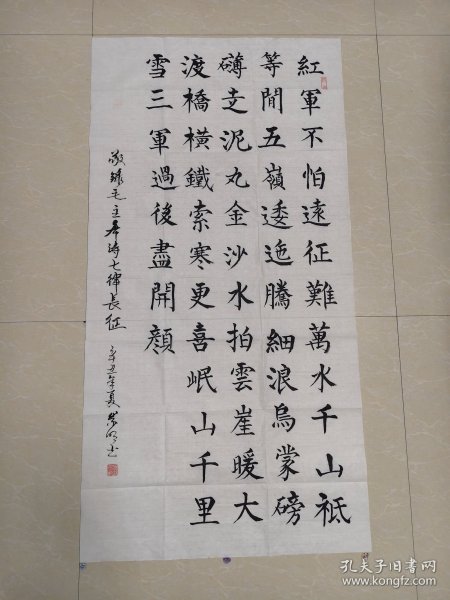 紅軍不怕遠征難萬水千山祗
等閒五嶺逶迤騰細浪烏蒙磅
礴走泥丸金沙水拍雲崖暖大
渡橋橫鐵索寒更喜岷山千里
雪三軍過後盡開顔
敬錄毛主席詩七律長征
辛丑年夏
孔夫子旧书网
www.kongfz.com